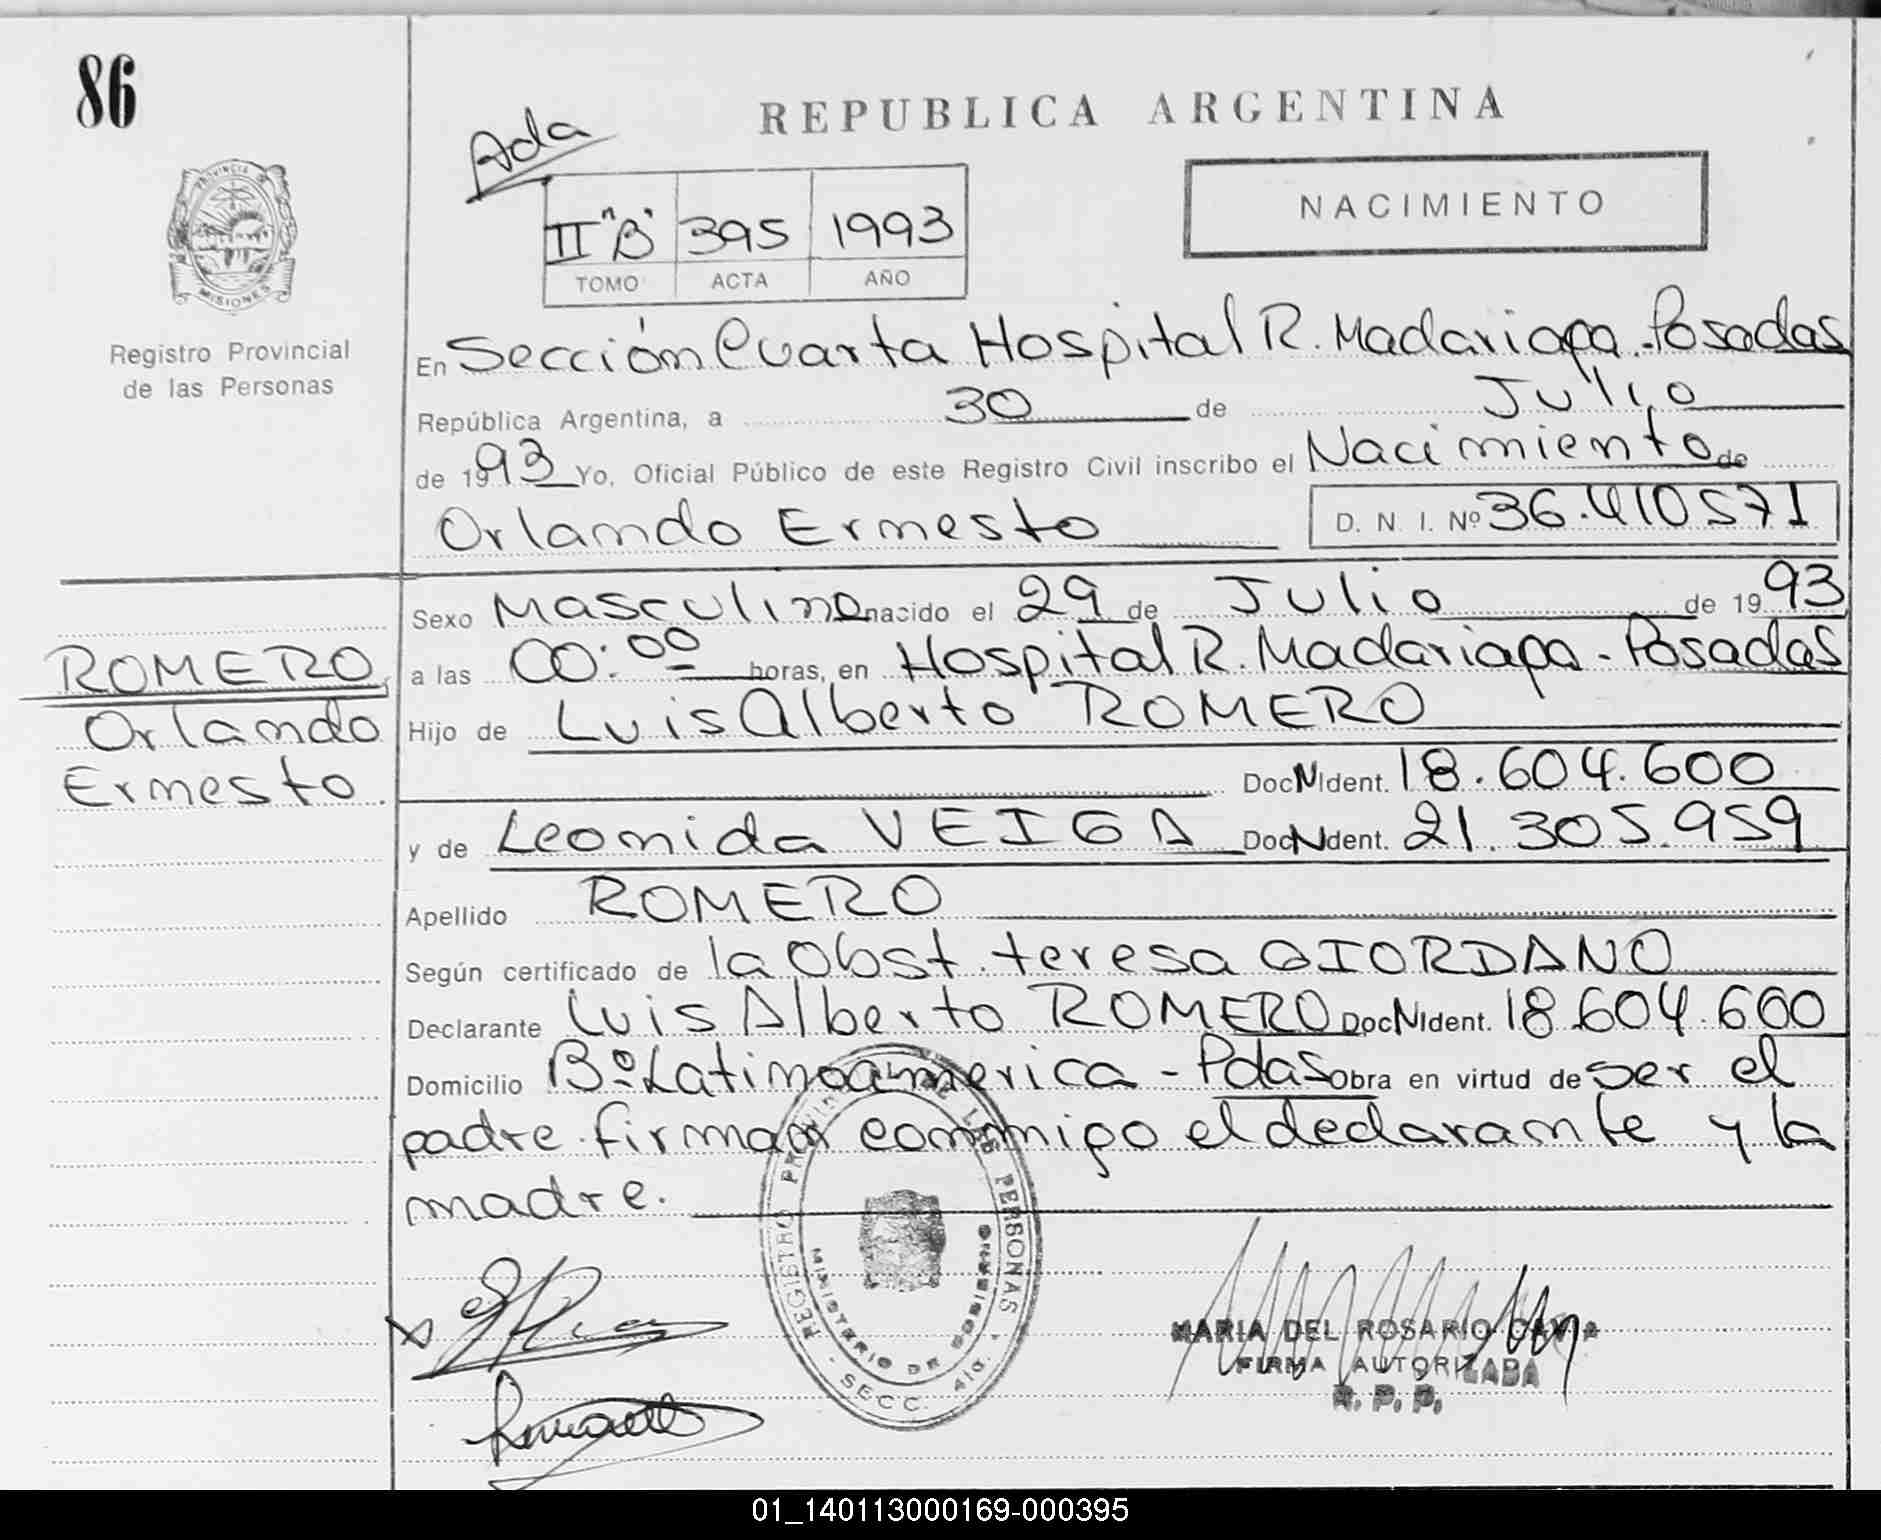 86
Ada
REPUBLICA ARGENTINA
NACIMIENTO
II "B" 395 1993
TOMO ACTA AÑO
PROVINCIA DE MISIONES
Registro Provincial
de las Personas
En Sección Cuarta Hospital R. Madariaga - Posadas
República Argentina, a 30 de Julio
de 1993 Yo, Oficial Público de este Registro Civil inscribo el Nacimiento de
Orlando Ernesto D. N. I. Nº 36.410571
Sexo Masculino nacido el 29 de Julio de 1993
a las 00:00 horas, en Hospital R. Madariaga - Posadas
Hijo de Luis Alberto ROMERO
Doc N Ident. 18.604.600
y de Leonida VEIGA Doc N dent. 21.305.959
Apellido ROMERO
Según certificado de la Obst. teresa GIORDANO
Declarante Luis Alberto ROMERO Doc N Ident. 18.604.600
Domicilio Bº Latinoamerica - Pdas Obra en virtud de ser el
padre. firman conmigo el declarante y la
madre.
ROMERO
Orlando
Ernesto
REGISTRO PROVINCIAL DE LAS PERSONAS
MINISTERIO DE GOBIERNO
SECC. 4ta.
MARIA DEL ROSARIO
FIRMA AUTORIZADA
R. P. P.
01_140113000169-000395